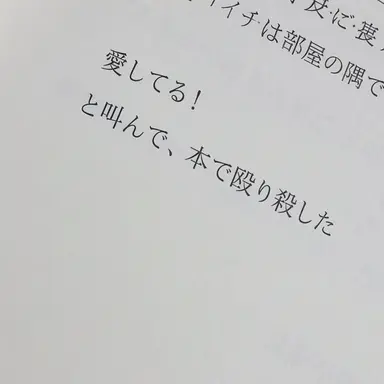 イイチは部屋の隅で
愛してる！
と叫んで、本で殴り殺した